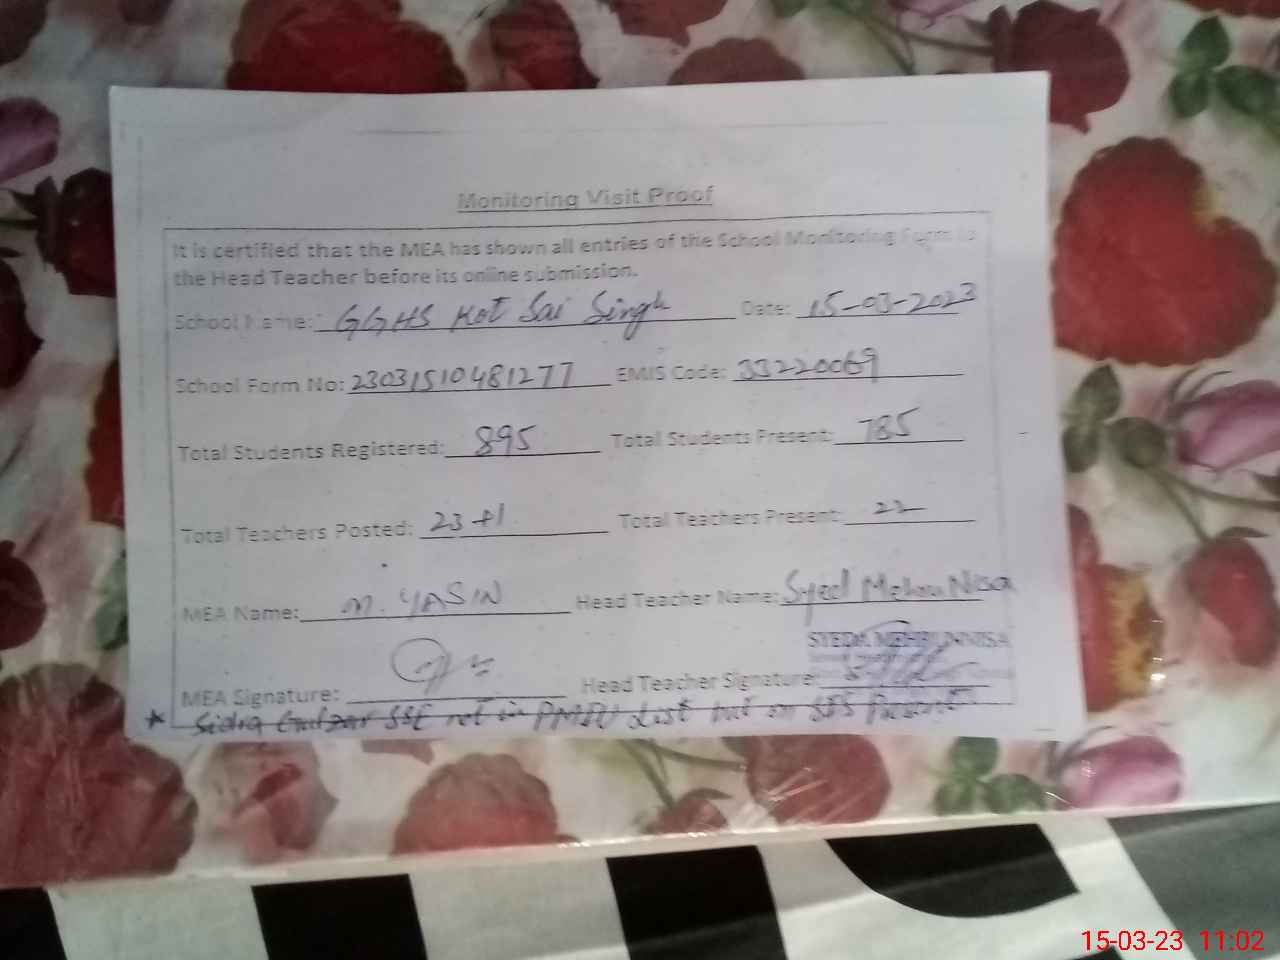 Monitoring Visit Proof
It is certified that the MEA has shown all entries of the School Monitoring Form to
the Head Teacher before its online submission.
School Name: GGHS Kot Sai Singh Date: 15-03-2023
School Form No: 23031510481277 EMIS Code: 33220069
Total Students Registered: 895 Total Students Present: 785
Total Teachers Posted: 23+1 Total Teachers Present: 22
MEA Name: M. YASIN Head Teacher Name: Syed Mehru Nisa
SYEDA MEHRUNNISA
MEA Signature: Head Teacher Signature:
* Sidra Gulzar SSE not in PMIU List but on SIS Present
15-03-23 11:02